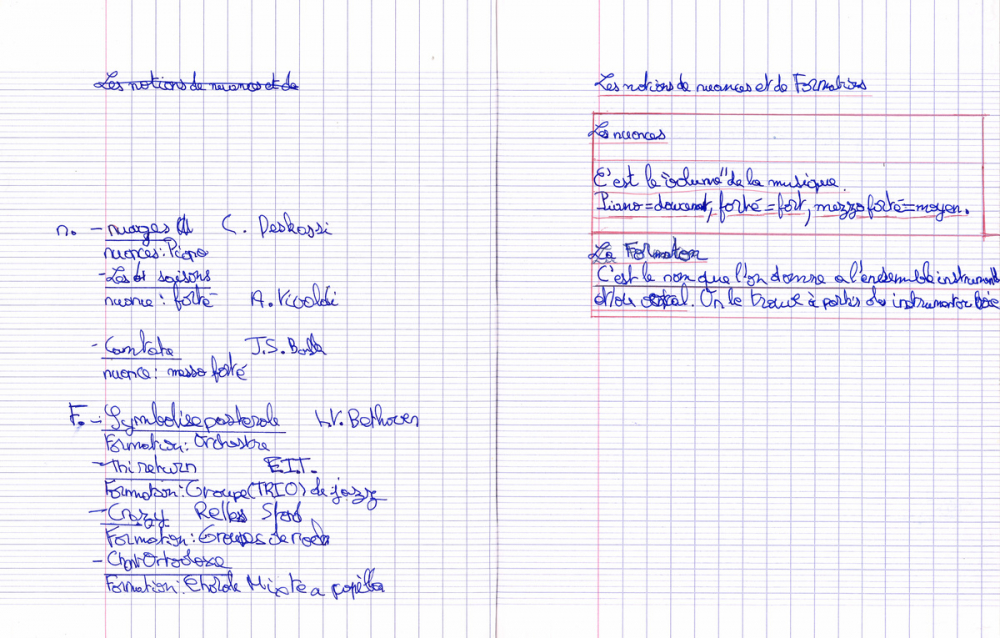 Les notions de nuances et de
n. - nuages C. Deskossi
nuances: Piano
- Les 4 saisons
nuance: forté A. Vivaldi
- Cantate J.S. Bach
nuance: messo forté
F. - Symbolise pastorale L.V. Bethoven
Formation: Orchestre
- Thi return E.I.T.
Formation: Groupe (TRIO) de jazz
- Crazy
Formation: Groupes de rock
- Chant Ortodoxe
Formation: Chorale Mixte a capélla
Les notions de nuances et de Formations
Les nuances
C'est le "volume" de la musique.
Piano = doucement, forté = fort, mezzo forté = moyen.
La Formation
C'est le nom que l'on donne a l'ensemble instrument
et/ou vocal. On le trouve à partir des